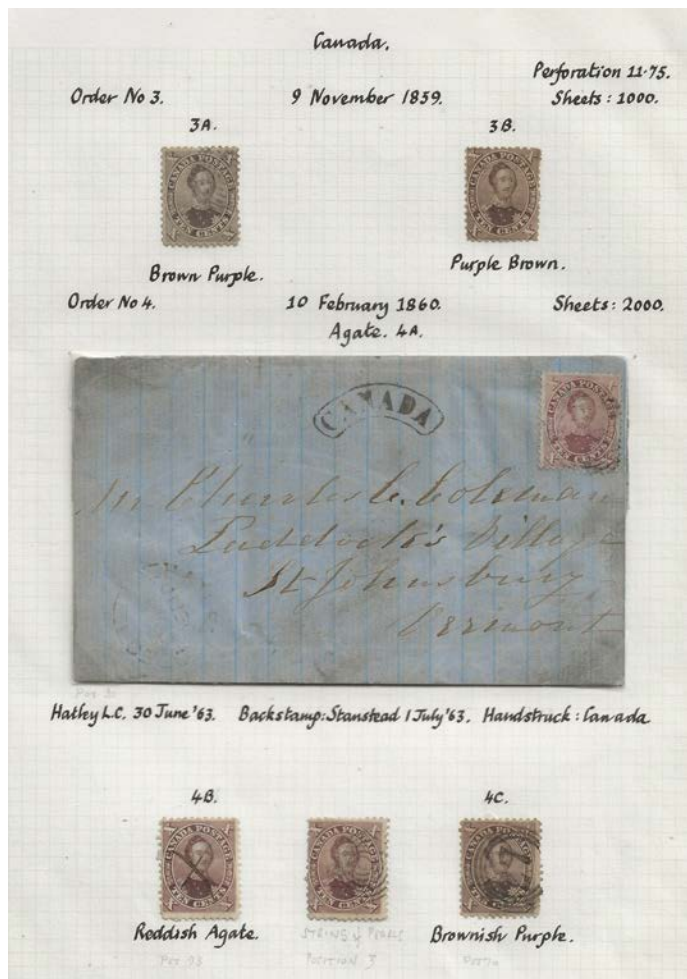 Canada.
Perforation 11·75.
Order No 3. 9 November 1859. Sheets: 1000.
3A. 3B.
CANADA POSTAGE
TEN CENTS
CANADA POSTAGE
TEN CENTS
Brown Purple. Purple Brown.
Order No 4. 10 February 1860. Sheets: 2000.
Agate. 4A.
CANADA
CANADA POSTAGE
TEN CENTS
Mr Charles C. Coleman
Paddock's Village
St Johnsbury
Vermont
Hatley L.C. 30 June '63. Backstamp: Stanstead 1 July '63. Handstruck: Canada
4B. 4C.
CANADA POSTAGE
TEN CENTS
CANADA POSTAGE
TEN CENTS
CANADA POSTAGE
TEN CENTS
Reddish Agate. STRING of PEARLS Brownish Purple.
POSITION 3